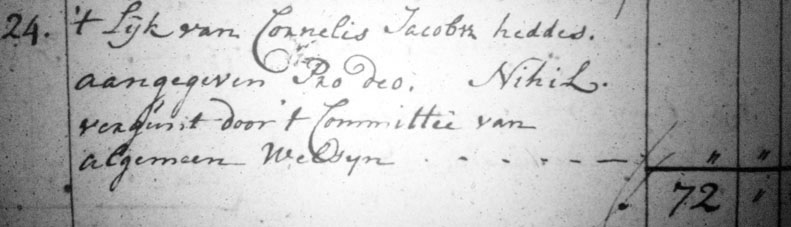 24. 't Lijk van Cornelis Jacobsz heddes.
aangegeven Pro deo. Nihil.
vergunt door 't Committée van
algemeen Welsyn . . . . . — " "
72 "